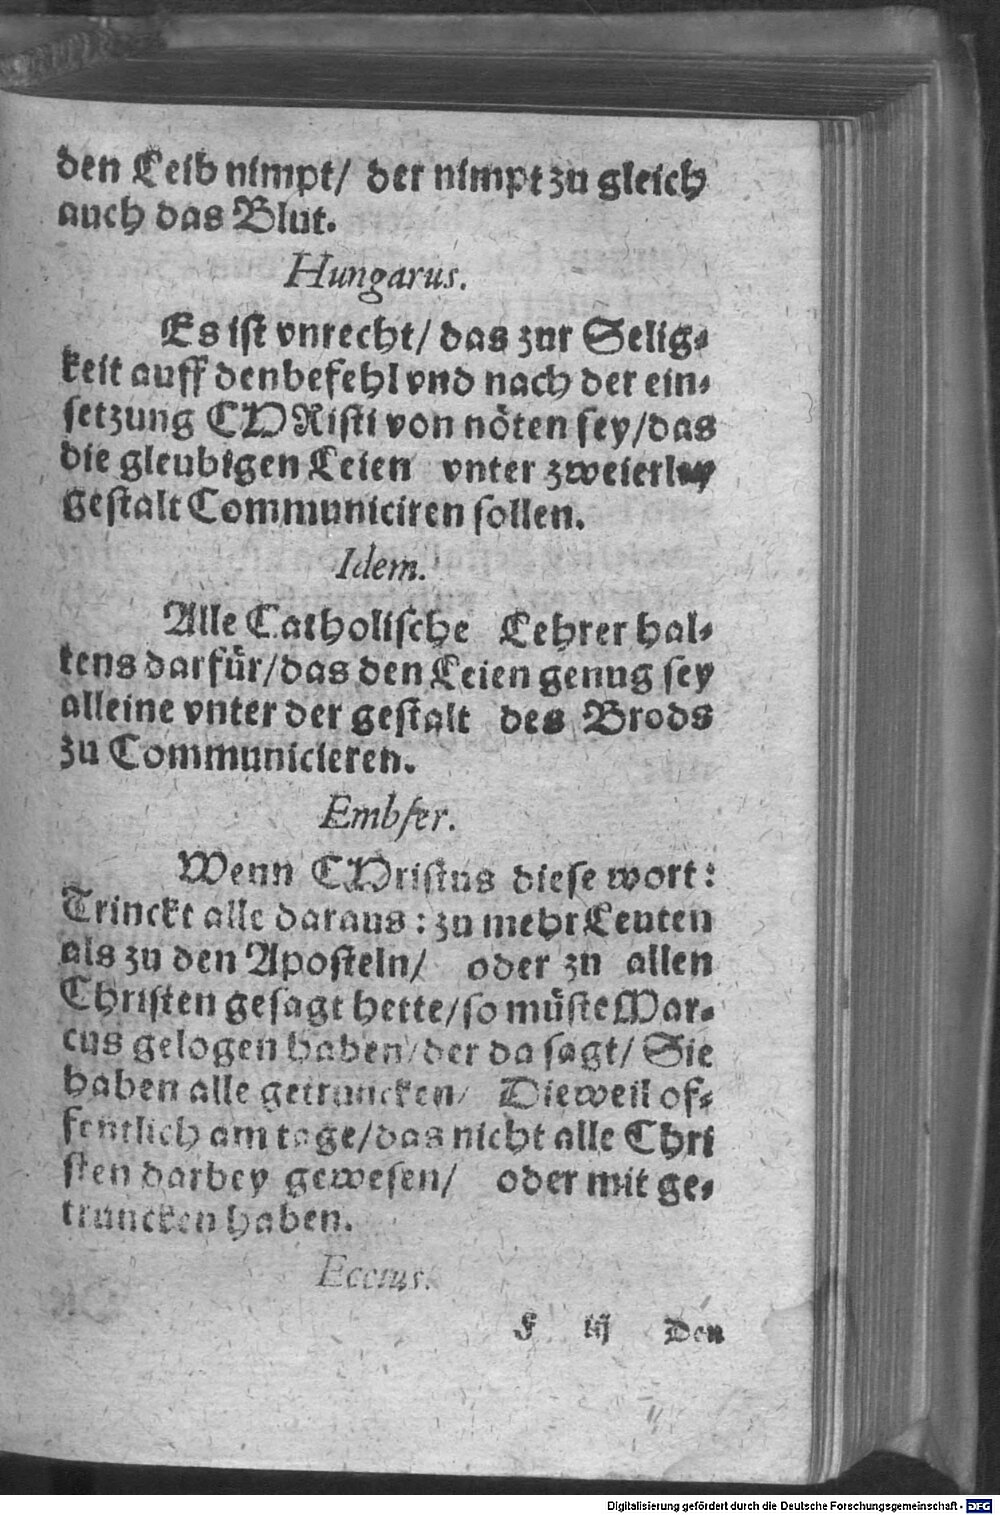 den Leib nimpt/ der nimpt zu gleich
auch das Blut.
Hungarus.
Es ist vnrecht/ das zur Selig-
keit auff den befehl vnd nach der ein-
setzung CHRisti von nöten sey/das
die gleubigen Leien vnter zweierley
gestalt Communiciren sollen.
Idem.
Alle Catholische Lehrer hal-
tens darfür/das den Leien genug sey
alleine vnter der gestalt des Brods
zu Communicieren.
Embser.
Wenn CHristus diese wort:
Trinckt alle daraus: zu mehr Leuten
als zu den Aposteln/ oder zu allen
Christen gesagt hette/so müste Mar-
cus gelogen haben/der da sagt/ Sie
haben alle getruncken/ Dieweil of-
fentlich am tage/das nicht alle Chri
sten darbey gewesen/ oder mit ge-
truncken haben.
Eccius.
F iij Den
Digitalisierung gefördert durch die Deutsche Forschungsgemeinschaft - DFG